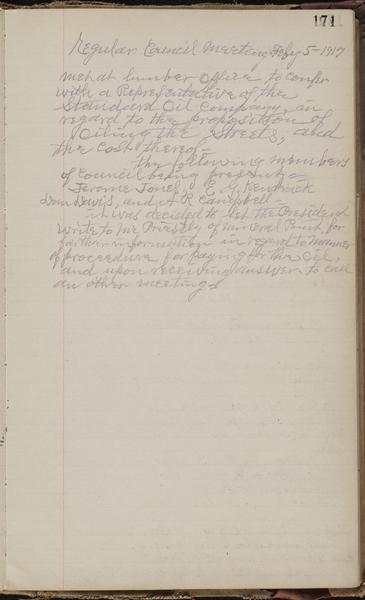 171
Regular Council Meeting, July 5-1917
met at lumber Office to confer
with a Representative of the
Standard Oil Company, in
regard to the proposition of
Oiling the Streets, and
the Cost thereof-
The following members
of Council being present-
Jerome Jones, E. G. Kendrick
Dan Davis, and A R Campbell-
it was decided to let the President
write to Mr Priestly of Mineral Point, for
farther information in regard to Manner
of proceedure for paying for the Oil,
and upon receiving answer to call
an other meeting